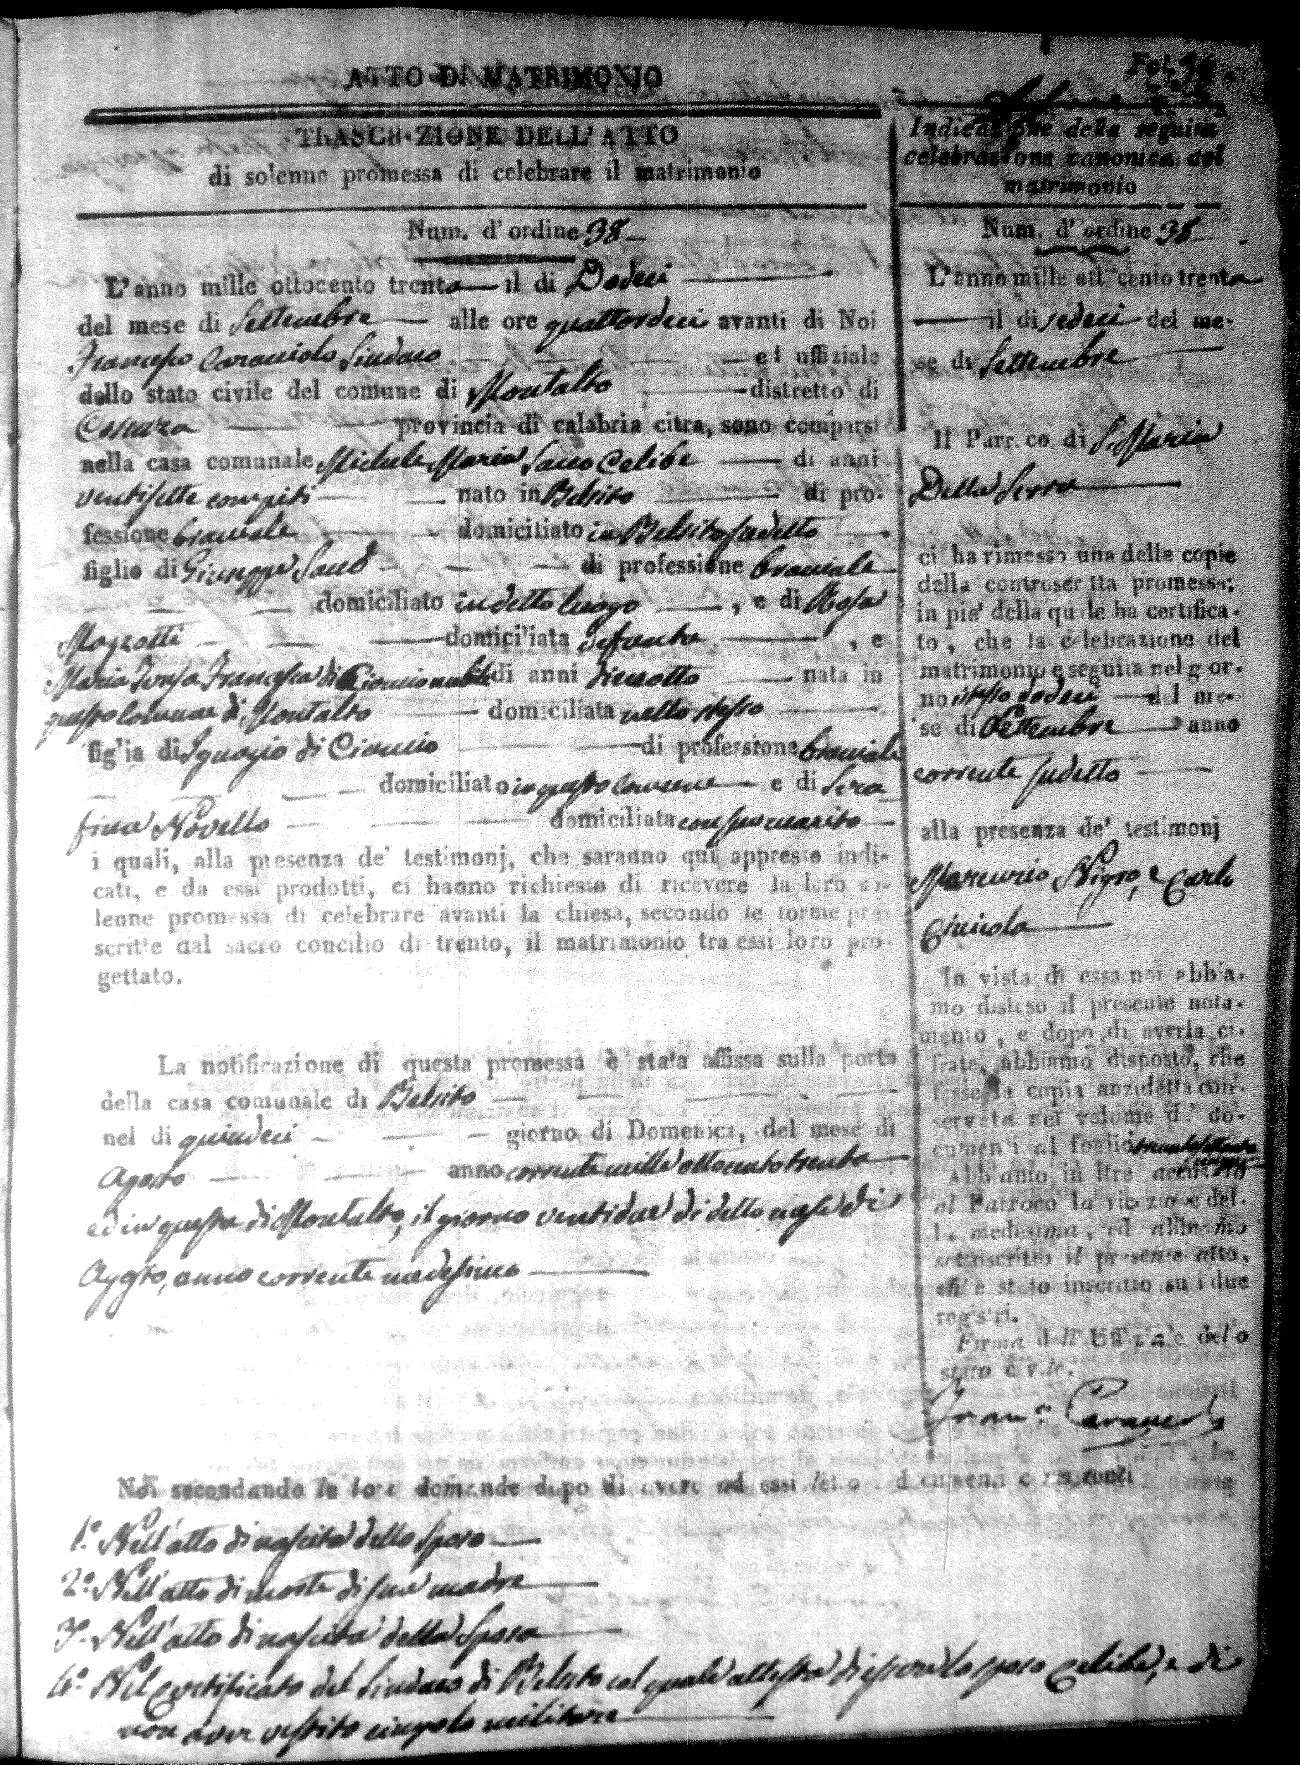 Fol.
ATTO DI MATRIMONIO
TRASCRIZIONE DELL' ATTO
di solenne promessa di celebrare il matrimonio
Num. d' ordine 38
L'anno mille ottocento trenta il di Dodeci
del mese di Settembre alle ore quattordeci avanti di Noi
Francesco Caracciolo Sindaco ed uffiziale
dello stato civile del comune di Montalto distretto di
Cosenza provincia di calabria citra, sono comparsi
nella casa comunale Michele Maria Sacco Celibe di anni
ventisette compiti nato in Belsito di pro-
fessione bracciale domiciliato in Belsito sudetto
figlio di Giuseppe Sacco di professione bracciale
domiciliato in detto luogo , e di Rosa
domiciliata defonta , e
Maria Francesca di Cioccio nubile di anni dieciotto nata in
questo Comune di Montalto domiciliata nello stesso
figlia di Ignazio di Cioccio di professione bracciale
domiciliato in questo Comune e di Sera
fina Novello domiciliata con suo marito
i quali, alla presenza de' testimonj, che saranno qui appresso indi-
cati, e da essi prodotti, ci hanno richiesto di ricevere la loro so-
lenne promessa di celebrare avanti la chiesa, secondo le forme pre
scritte dal sacro concilio di trento, il matrimonio tra essi loro pro
gettato.
La notificazione di questa promessa è stata affissa sulla porta
della casa comunale di Belsito
nel di quindeci giorno di Domenica, del mese di
Agosto anno corrente mille ottocento trenta
ed in questa di Montalto, il giorno ventidue di detto mese di
Agosto, anno corrente medesimo
Indicazione della seguita
celebrazione canonica del
matrimonio
Num. d' ordine 38
L'anno mille ott cento trenta
il di sedeci del me-
se di Settembre
Il Parroco di S. Maria
Della Serra
ci ha rimesso una delle copie
della controscritta promessa;
in piè della quale ha certifica-
to, che la celebrazione del
matrimonio è seguita nel gior-
no istesso dodeci del me-
se di Settembre anno
corrente sudetto
alla presenza de' testimonj
Nigro, e Carlo
In vista di essa noi abbia-
mo disteso il presente nota-
mento, e dopo di averla ci-
frate, abbiamo disposto, che
fosse la copia anzidetta con-
servata nel volume de' do-
cumenti al foglio
Abbiamo in oltre accusato
al Parroco la ricezione del-
la medesima, ed abbiamo
sottoscritto il presente atto,
ch' è stato inscritto su i due
registri.
Firma dell' Uffiziale dello
stato civile.
Fran.co Caracciolo
Noi secondando le loro domande dopo di avere ad essi letto i documenti
1.° Nell'atto di nascita dello Sposo
2.° Nell'atto di morte di sua madre
3.° Nell'atto di nascita della Sposa
4.° Nel certificato del Sindaco di Belsito col quale attesta di essere lo sposo celibe, e di
non aver vestito cingolo militare